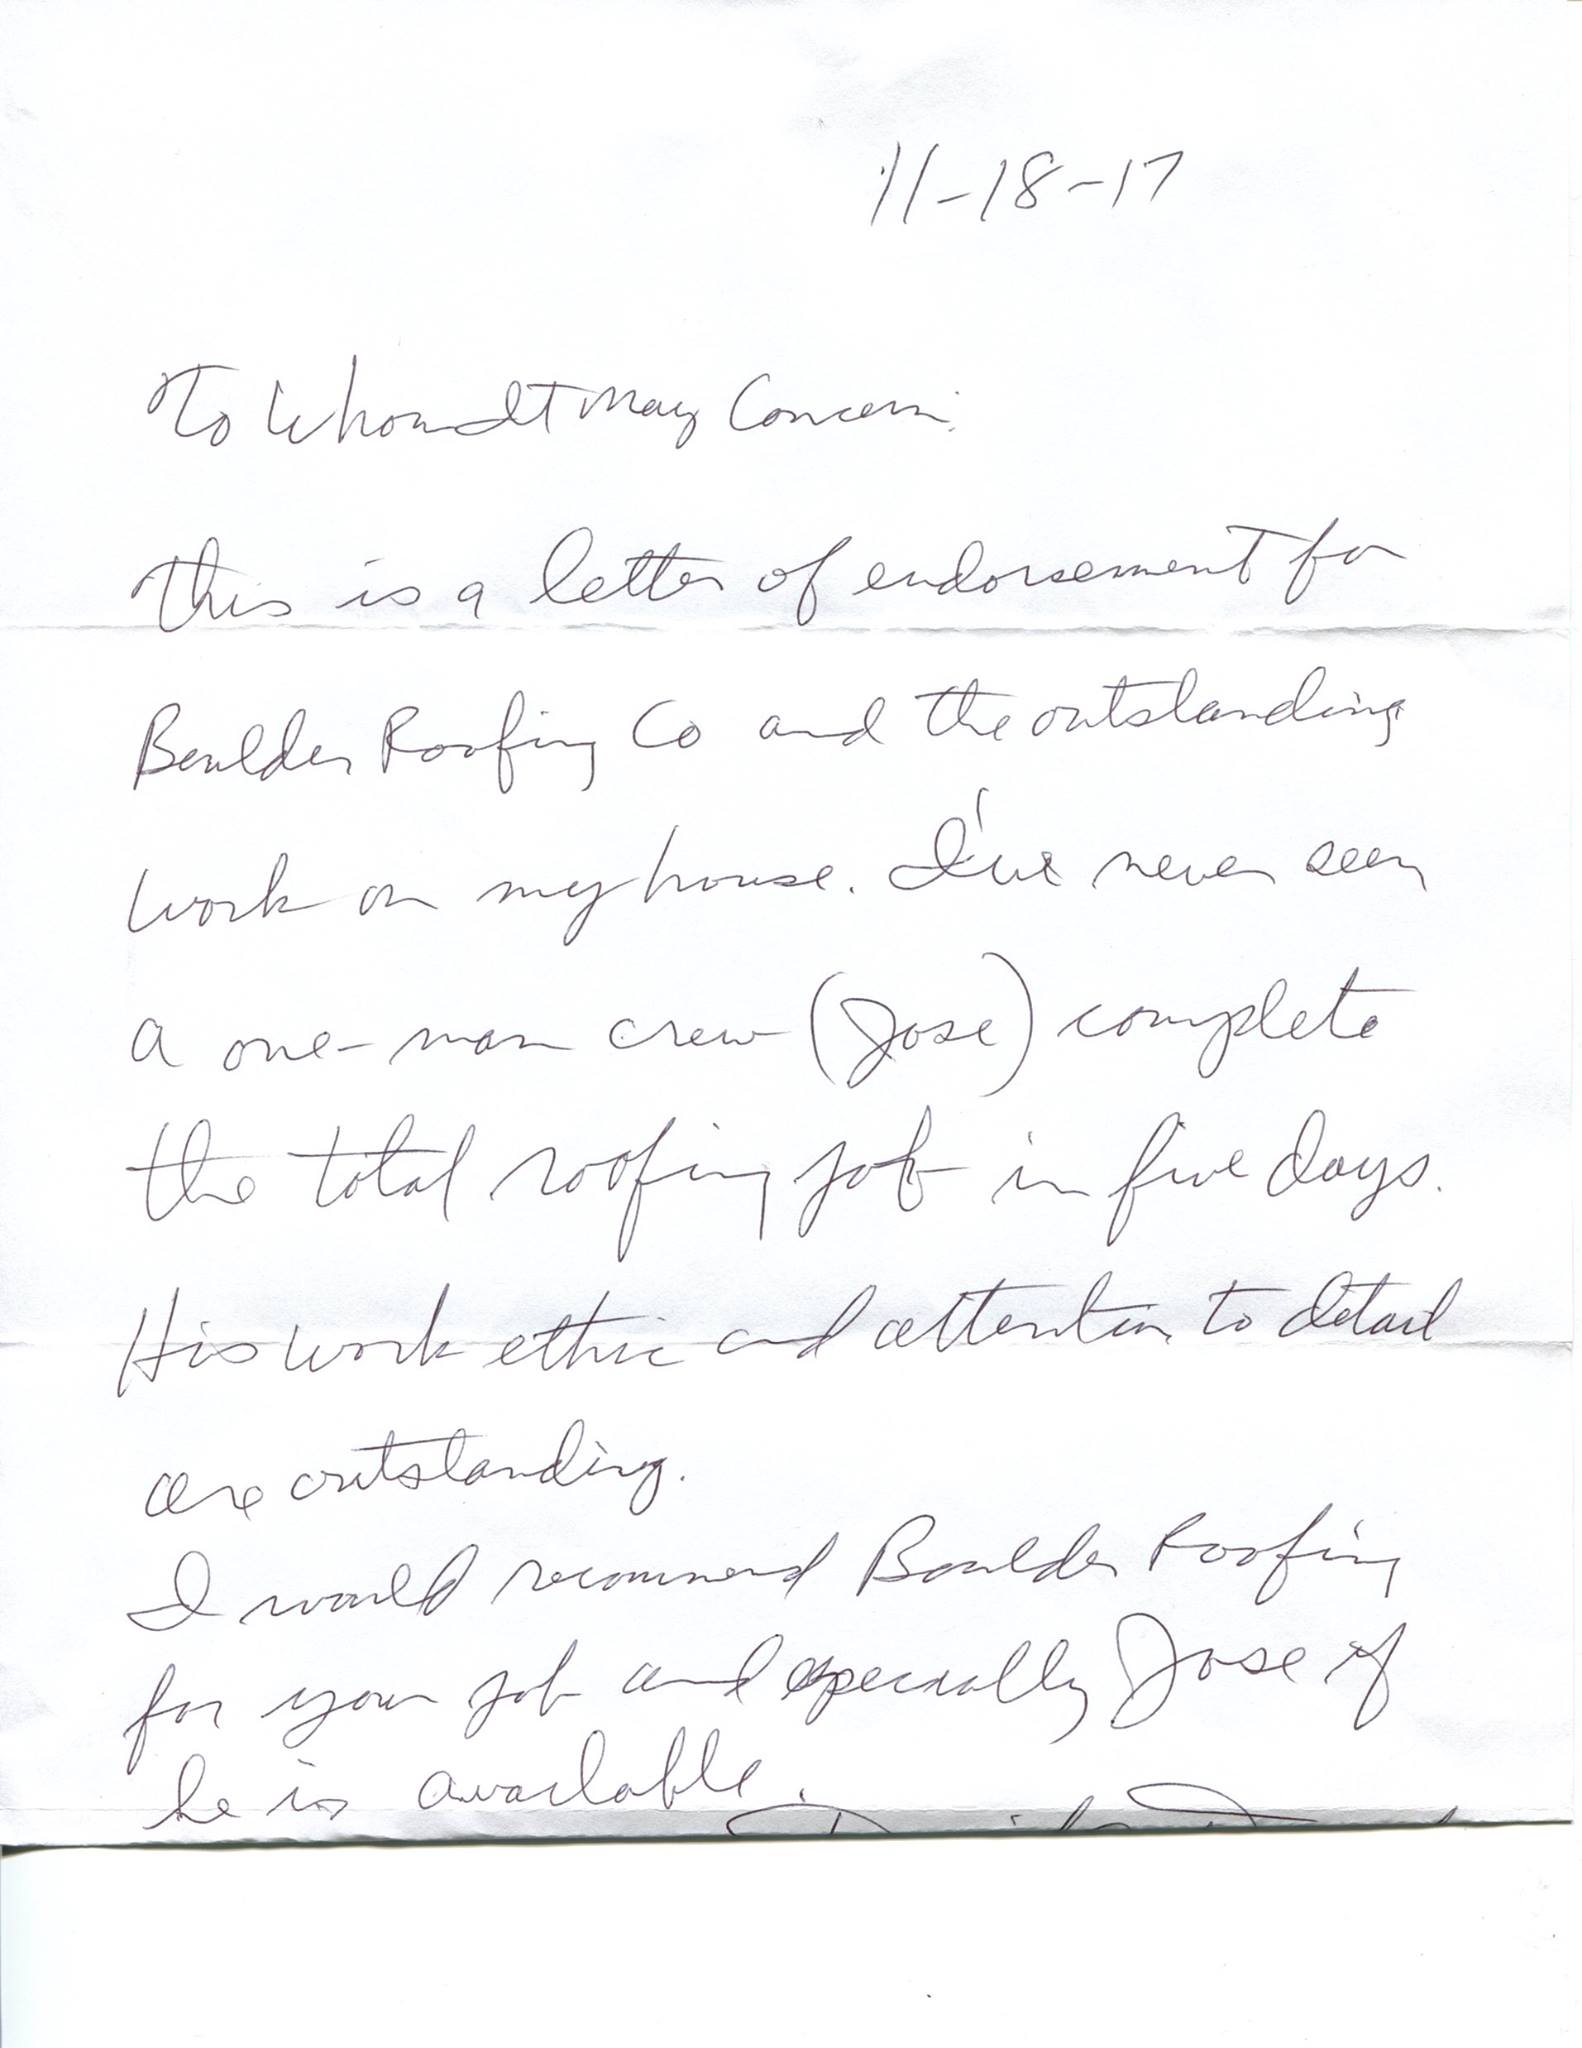 11-18-17
To Whom It May Concern:
This is a letter of endorsement for
Boulder Roofing Co and the outstanding
work on my house. I've never seen
a one-man crew (Jose) complete
the total roofing job in five days.
His work ethic and attention to detail
are outstanding.
I would recommend Boulder Roofing
for your job and especially Jose if
he is available.